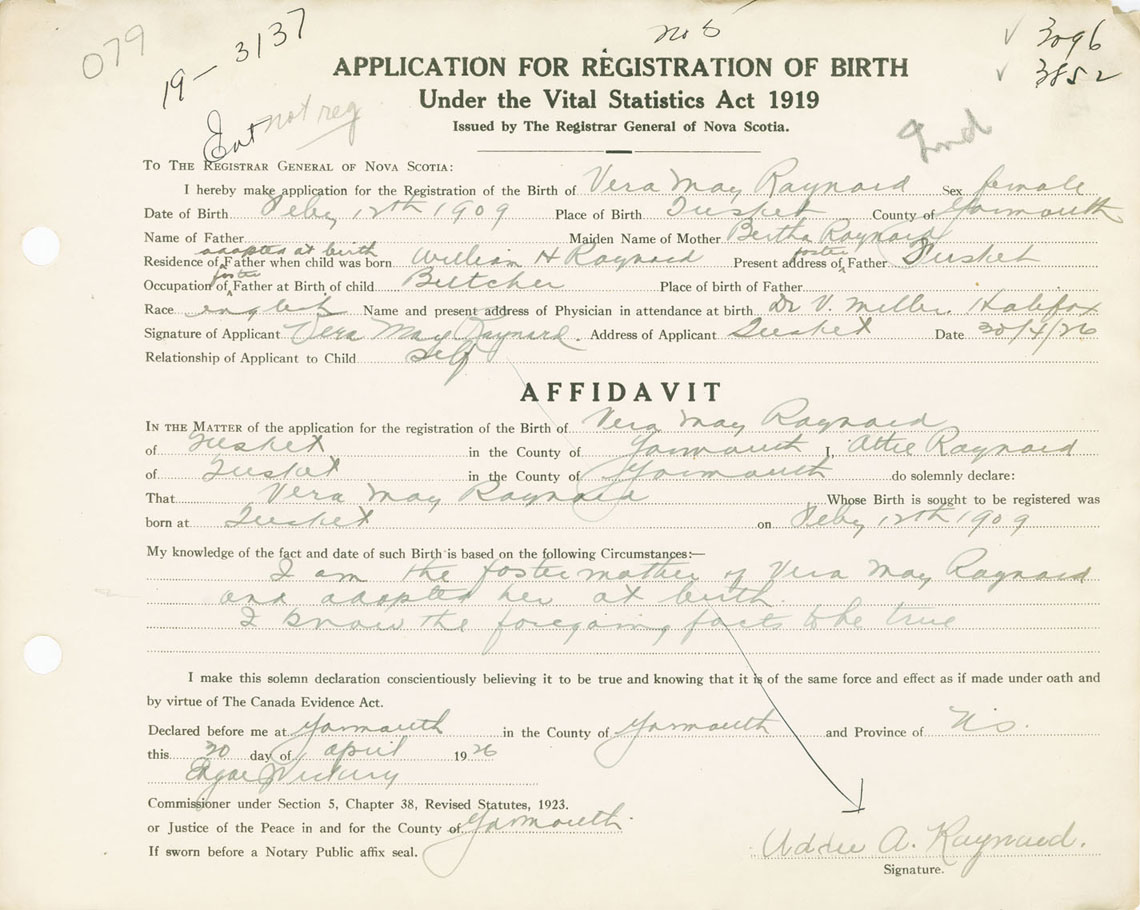 079
19 - 3137
No 5
✓ 3096
✓ 3852
not reg
APPLICATION FOR REGISTRATION OF BIRTH
Under the Vital Statistics Act 1919
Issued by The Registrar General of Nova Scotia.
TO THE REGISTRAR GENERAL OF NOVA SCOTIA:
I hereby make application for the Registration of the Birth of Vera May Raynard Sex female
Date of Birth Feby 12th 1909 Place of Birth Tusket County of Yarmouth
Name of Father Maiden Name of Mother Bertha Raynard
adopted at birth foster
Residence of Father when child was born William H Raynard Present address of Father Tusket
foster
Occupation of Father at Birth of child Butcher Place of birth of Father
Race english Name and present address of Physician in attendance at birth Dr V. Miller, Halifax
Signature of Applicant Vera May Raynard. Address of Applicant Tusket Date 20/4/26
Relationship of Applicant to Child Self
AFFIDAVIT
IN THE MATTER of the application for the registration of the Birth of Vera May Raynard
of Tusket in the County of Yarmouth I, Attie Raynard
of Tusket in the County of Yarmouth do solemnly declare:
That Vera May Raynard Whose Birth is sought to be registered was
born at Tusket on Feby 12th 1909
My knowledge of the fact and date of such Birth is based on the following Circumstances:—
I am the foster mother of Vera May Raynard
and adopted her at birth.
I know the foregoing facts to be true
I make this solemn declaration conscientiously believing it to be true and knowing that it is of the same force and effect as if made under oath and
by virtue of The Canada Evidence Act.
Declared before me at Yarmouth in the County of Yarmouth and Province of N.S.
this 20 day of april 1926
Commissioner under Section 5, Chapter 38, Revised Statutes, 1923.
or Justice of the Peace in and for the County of Yarmouth
If sworn before a Notary Public affix seal.
Addie A. Raynard.
Signature.